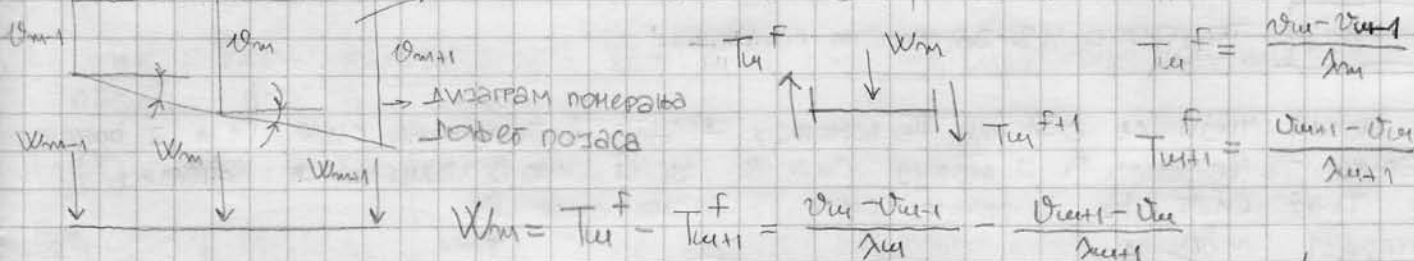 υm-1 υm υm+1
→ дијаграм померања
доњег појаса
Wm-1 Wm Wm+1
Tm^f Wm Tm^f+1
Tm^f = (υm - υm-1) / λm
Tm+1^f = (υm+1 - υm) / λm+1
Wm = Tm^f - Tm+1^f = (υm - υm-1) / λm - (υm+1 - υm) / λm+1